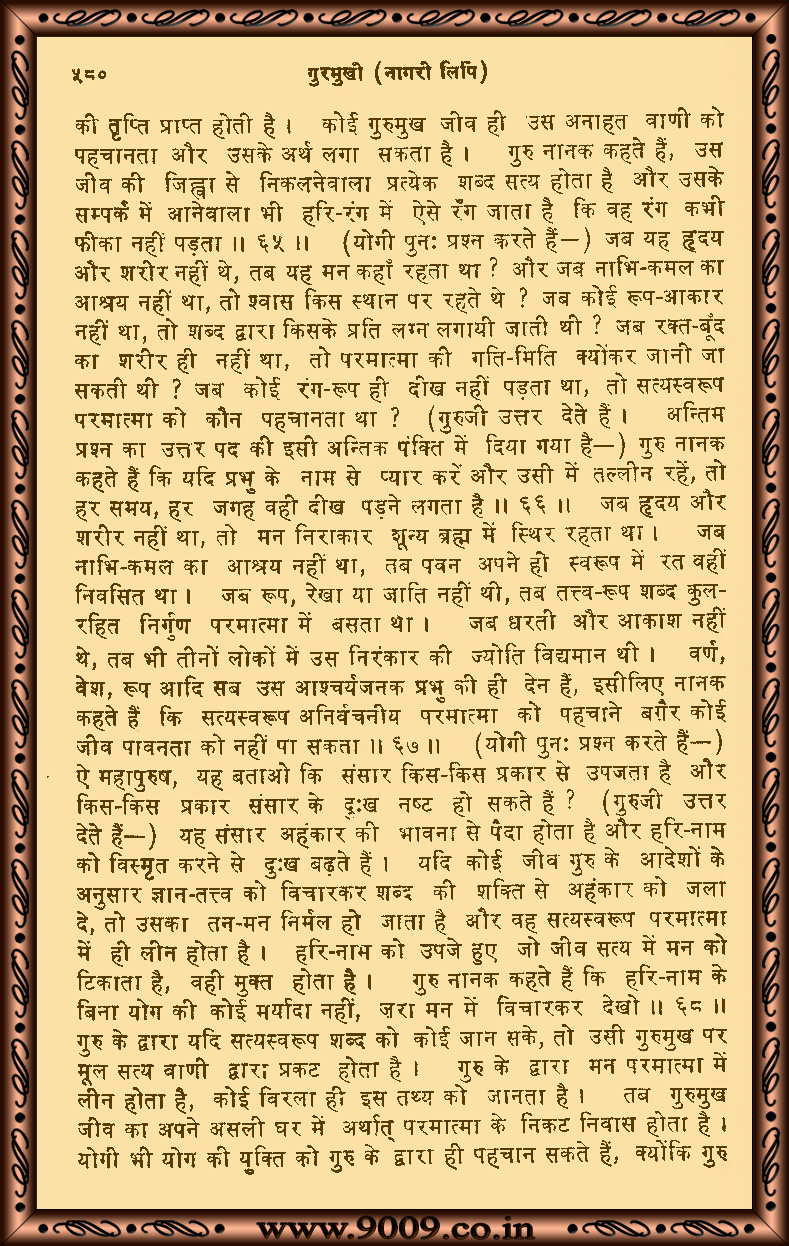 ५८०
गुरमुखी (नागरी लिपि)
की तृप्ति प्राप्त होती है। कोई गुरुमुख जीव ही उस अनाहत वाणी को
पहचानता और उसके अर्थ लगा सकता है। गुरु नानक कहते हैं, उस
जीव की जिह्वा से निकलनेवाला प्रत्येक शब्द सत्य होता है और उसके
सम्पर्क में आनेवाला भी हरि-रंग में ऐसे रँग जाता है कि वह रंग कभी
फीका नहीं पड़ता ॥ ६५ ॥ (योगी पुनः प्रश्न करते हैं—) जब यह हृदय
और शरीर नहीं थे, तब यह मन कहाँ रहता था ? और जब नाभि-कमल का
आश्रय नहीं था, तो श्वास किस स्थान पर रहते थे ? जब कोई रूप-आकार
नहीं था, तो शब्द द्वारा किसके प्रति लग्न लगायी जाती थी ? जब रक्त-बूँद
का शरीर ही नहीं था, तो परमात्मा की गति-मिति क्योंकर जानी जा
सकती थी ? जब कोई रंग-रूप ही दीख नहीं पड़ता था, तो सत्यस्वरूप
परमात्मा को कौन पहचानता था ? (गुरुजी उत्तर देते हैं। अन्तिम
प्रश्न का उत्तर पद की इसी अन्तिक पंक्ति में दिया गया है—) गुरु नानक
कहते हैं कि यदि प्रभु के नाम से प्यार करें और उसी में तल्लीन रहें, तो
हर समय, हर जगह वही दीख पड़ने लगता है ॥ ६६ ॥ जब हृदय और
शरीर नहीं था, तो मन निराकार शून्य ब्रह्म में स्थिर रहता था। जब
नाभि-कमल का आश्रय नहीं था, तब पवन अपने ही स्वरूप में रत वहीं
निवसित था। जब रूप, रेखा या जाति नहीं थी, तब तत्त्व-रूप शब्द कुल-
रहित निर्गुण परमात्मा में बसता था। जब धरती और आकाश नहीं
थे, तब भी तीनों लोकों में उस निरंकार की ज्योति विद्यमान थी। वर्ण,
वेश, रूप आदि सब उस आश्चर्यजनक प्रभु की ही देन हैं, इसीलिए नानक
कहते हैं कि सत्यस्वरूप अनिर्वचनीय परमात्मा को पहचाने बग़ैर कोई
जीव पावनता को नहीं पा सकता ॥ ६७ ॥ (योगी पुनः प्रश्न करते हैं—)
ऐ महापुरुष, यह बताओ कि संसार किस-किस प्रकार से उपजता है और
किस-किस प्रकार संसार के दुःख नष्ट हो सकते हैं ? (गुरुजी उत्तर
देते हैं—) यह संसार अहंकार की भावना से पैदा होता है और हरि-नाम
को विस्मृत करने से दुःख बढ़ते हैं। यदि कोई जीव गुरु के आदेशों के
अनुसार ज्ञान-तत्त्व को विचारकर शब्द की शक्ति से अहंकार को जला
दे, तो उसका तन-मन निर्मल हो जाता है और वह सत्यस्वरूप परमात्मा
में ही लीन होता है। हरि-नाम को उपजे हुए जो जीव सत्य में मन को
टिकाता है, वही मुक्त होता है। गुरु नानक कहते हैं कि हरि-नाम के
बिना योग की कोई मर्यादा नहीं, जरा मन में विचारकर देखो ॥ ६८ ॥
गुरु के द्वारा यदि सत्यस्वरूप शब्द को कोई जान सके, तो उसी गुरुमुख पर
मूल सत्य वाणी द्वारा प्रकट होता है। गुरु के द्वारा मन परमात्मा में
लीन होता है, कोई विरला ही इस तथ्य को जानता है। तब गुरुमुख
जीव का अपने असली घर में अर्थात् परमात्मा के निकट निवास होता है।
योगी भी योग की युक्ति को गुरु के द्वारा ही पहचान सकते हैं, क्योंकि गुरु
www.9009.co.in